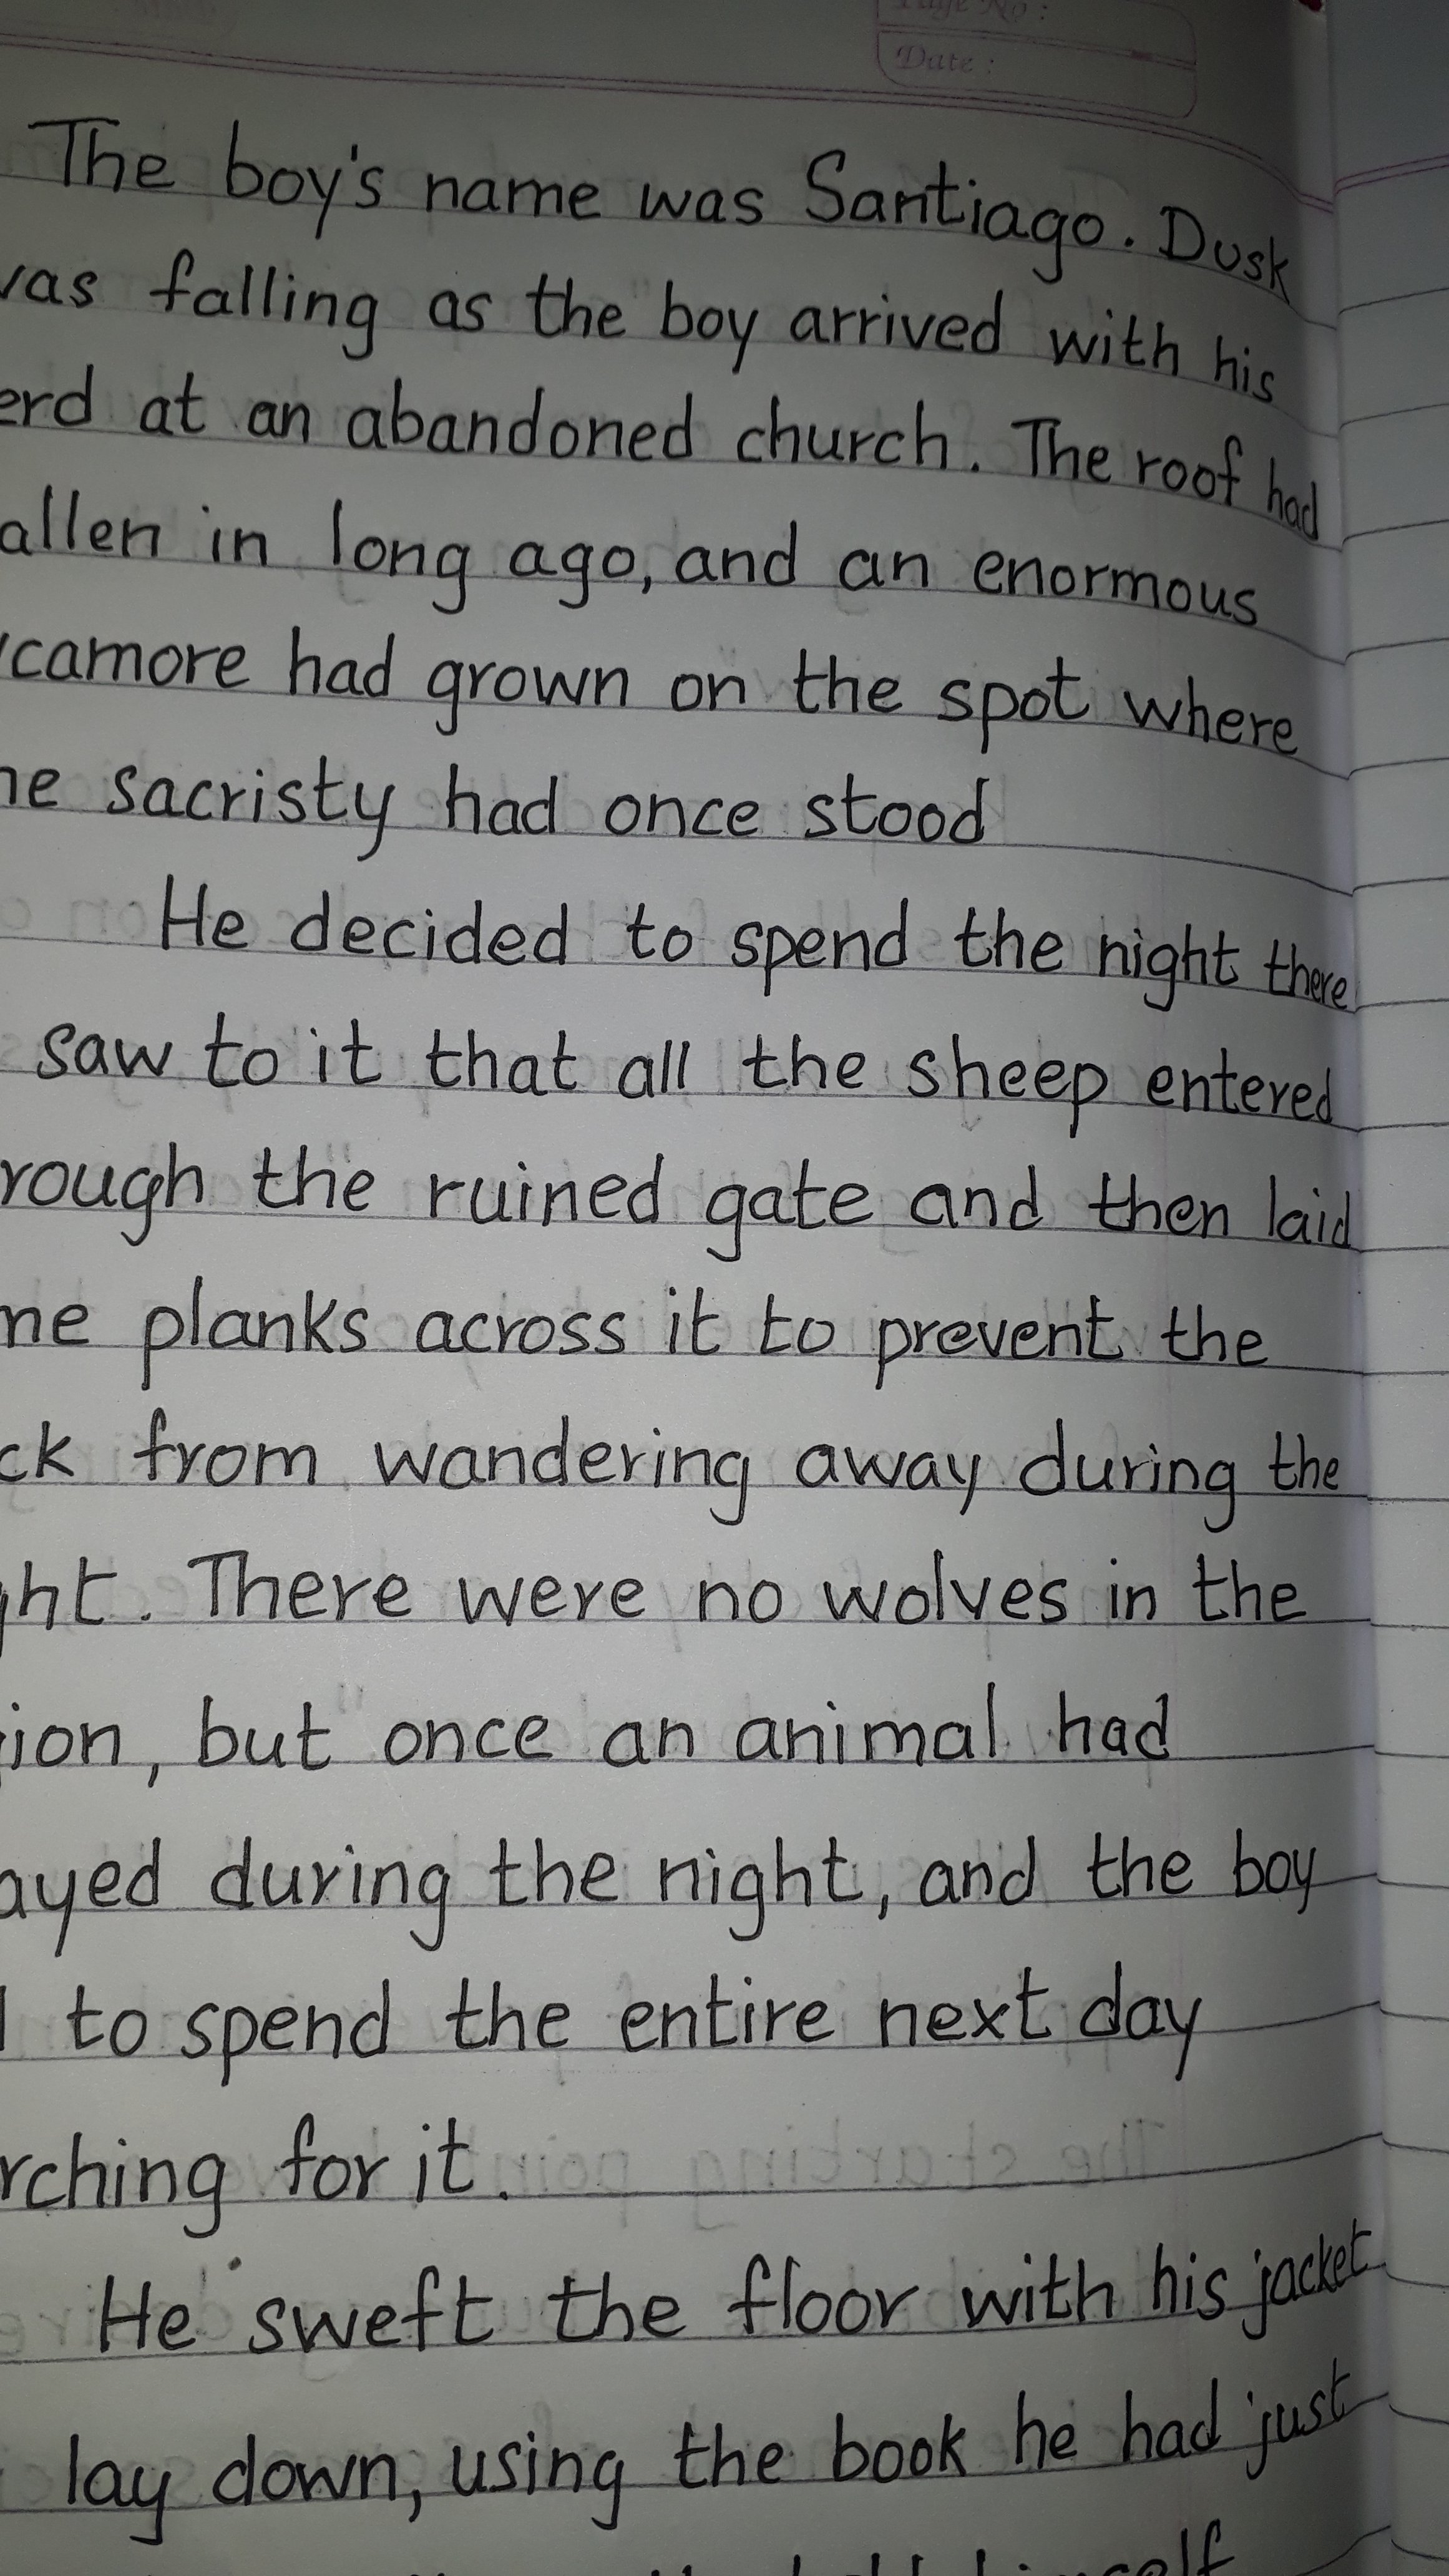 Page No :
Date :
The boy's name was Santiago. Dusk
was falling as the boy arrived with his
erd at an abandoned church. The roof had
allen in long ago, and an enormous
ycamore had grown on the spot where
he sacristy had once stood
He decided to spend the night there
saw to it that all the sheep entered
rough the ruined gate and then laid
me planks across it to prevent the
ck from wandering away during the
ght. There were no wolves in the
ion, but once an animal had
ayed during the night, and the boy
to spend the entire next day
rching for it.
He sweft the floor with his jacket
lay down, using the book he had just